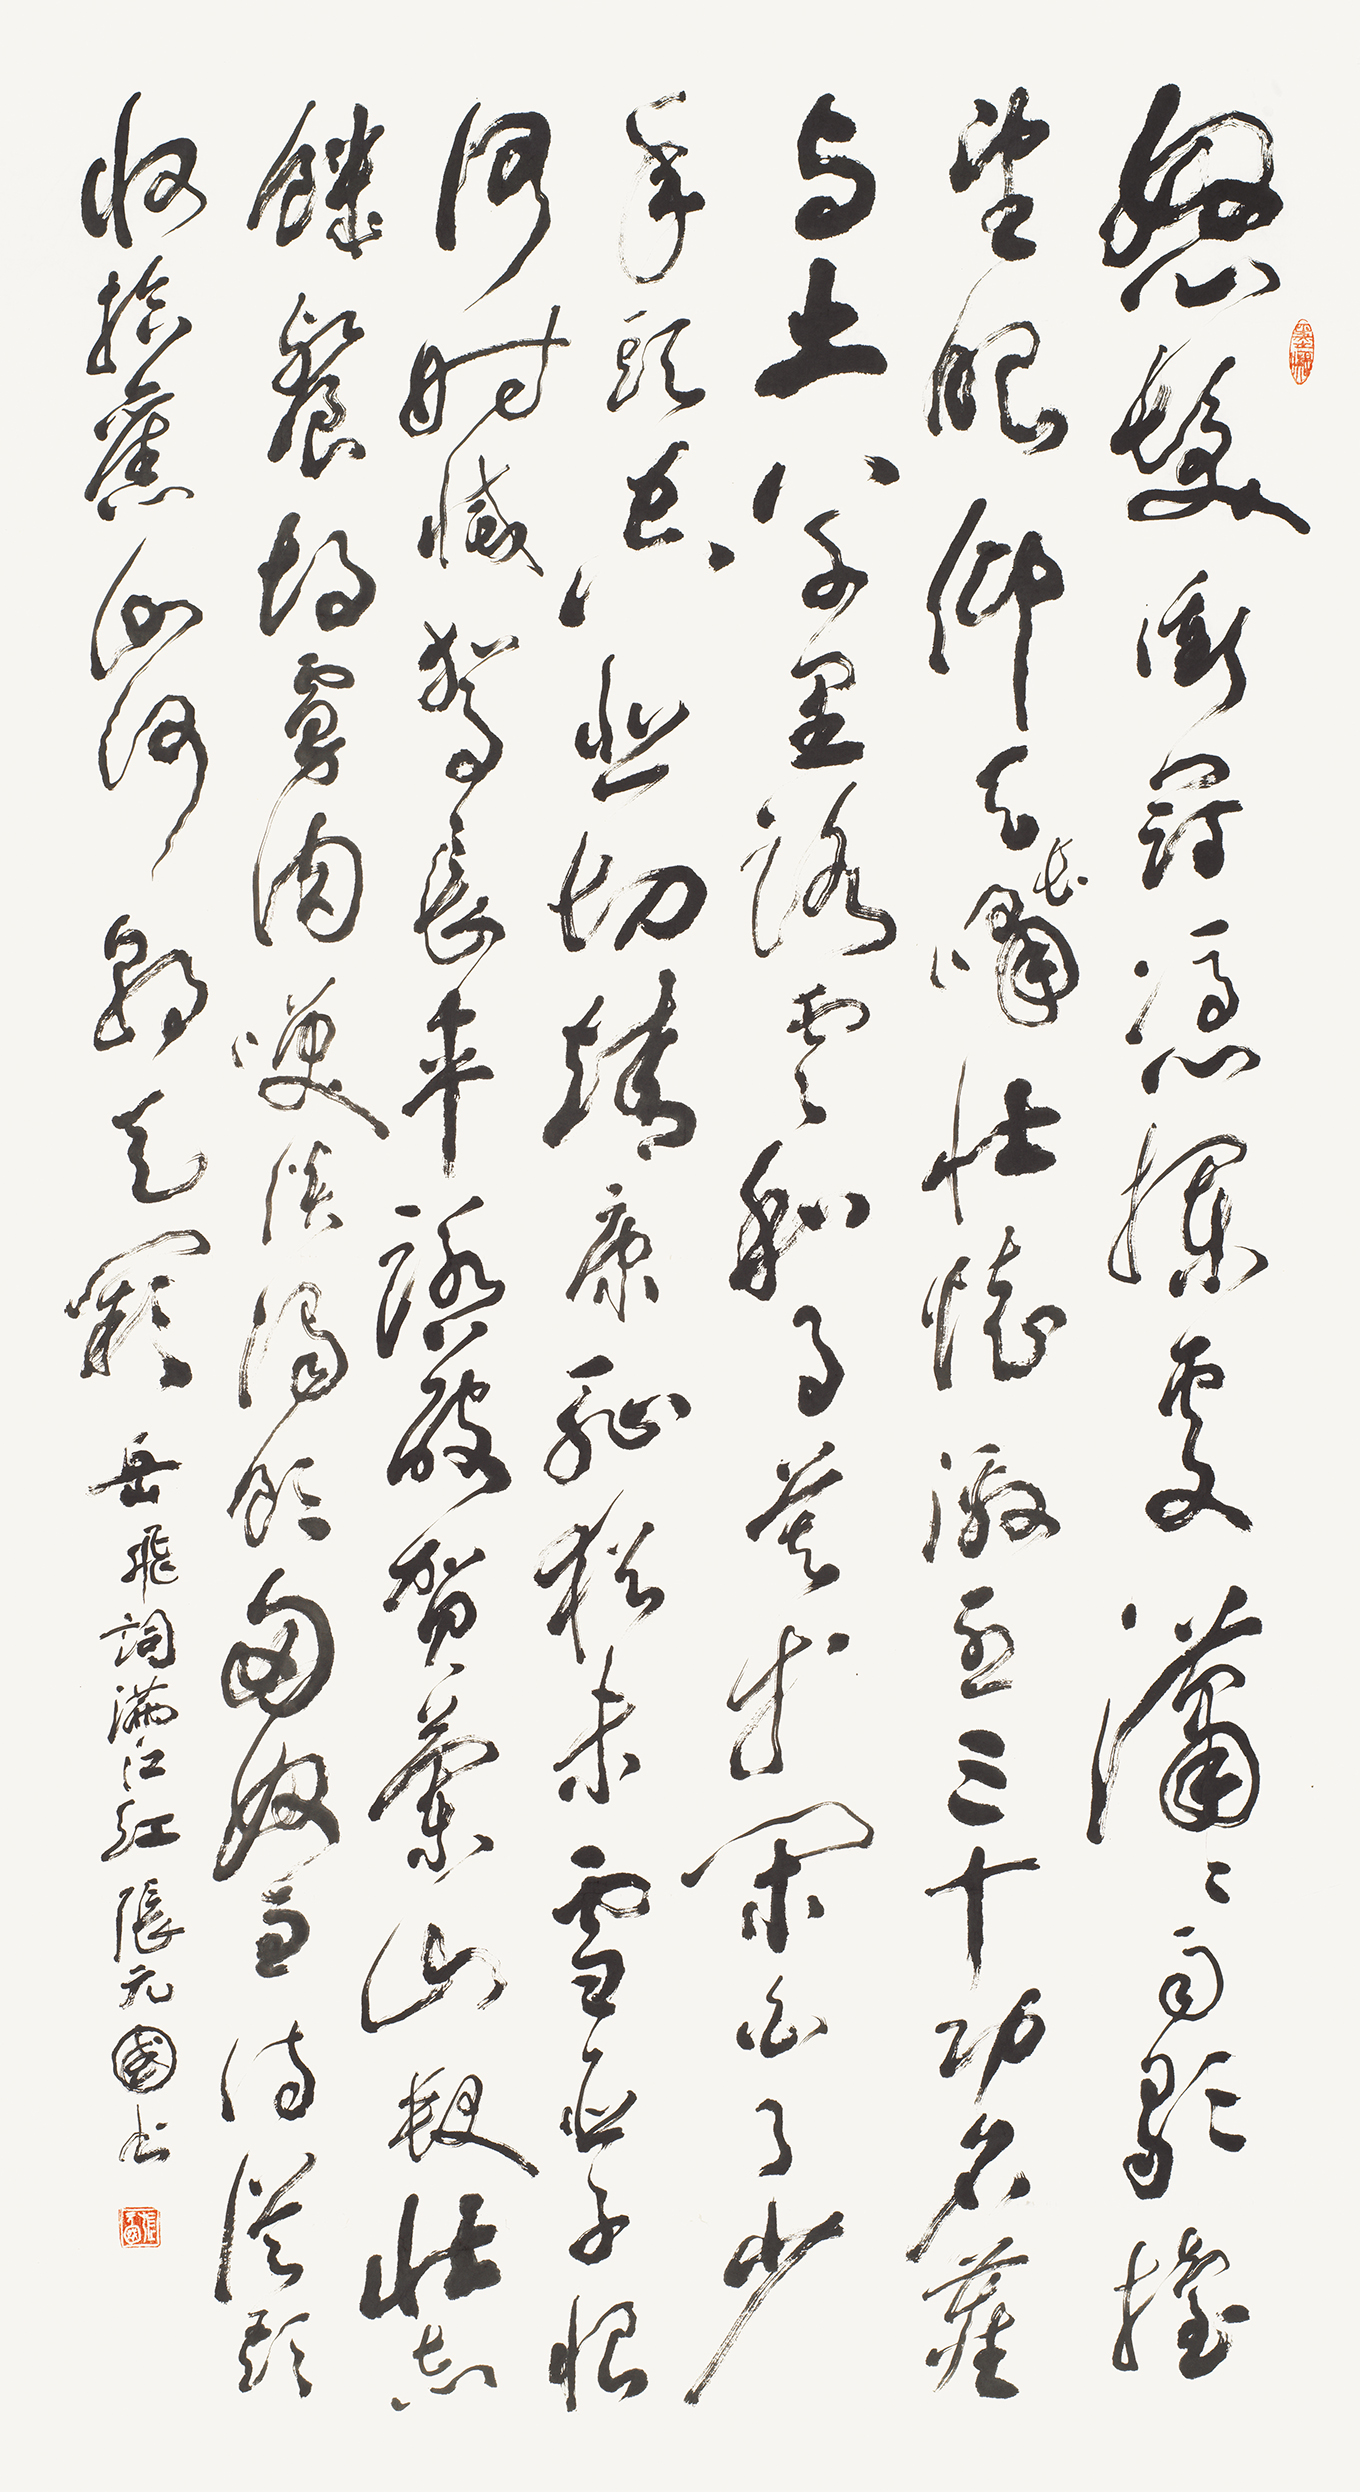 怒髮衝冠憑攔處瀟瀟雨歇擡
望眼仰天長嘯壯懷激烈三十功名塵
与土八千里路雲和月莫等閑白了少
年頭空悲切靖康恥猶未雪臣子恨
何時滅駕長車踏破賀蘭山缺壯志
饑餐胡虜肉笑談渴飲匈奴血待從頭
收拾舊山河朝天闕 岳飛詞滿江紅 張元國书